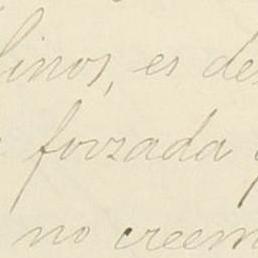 linos, es de
forzada
no creem